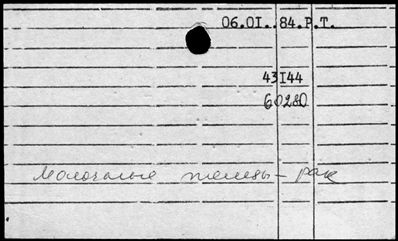 06.01..84.Р.Т.
43144
60280
Молочные железы - рак